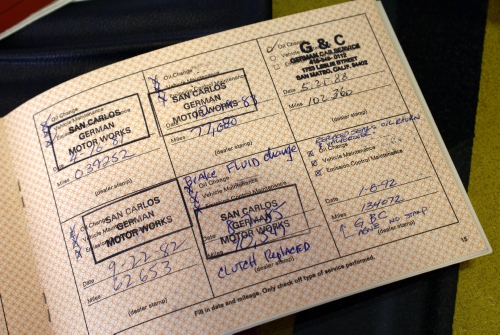 Oil Change
Vehicle Maintenance
SAN CARLOS
GERMAN
MOTOR WORKS
Date
Miles 039252
(dealer stamp)
Oil Change
Vehicle Maintenance
SAN CARLOS
GERMAN
MOTOR WORKS
Date
Miles
(dealer stamp)
Oil Change
Vehicle
G & C
GERMAN CAR SERVICE
1753 LESLIE STREET
SAN MATEO, CALIF. 94402
Date 5-21-88
Miles 102,360
(dealer stamp)
Oil Change
Vehicle Maintenance
SAN CARLOS
GERMAN
MOTOR WORKS
Date 9-22-82
Miles 62653
(dealer stamp)
Brake FLUID change
Oil Change
Vehicle Maintenance
SAN CARLOS
GERMAN
MOTOR WORKS
Date
Miles
CLUTCH Replaced
(dealer stamp)
OIL RETURN
Oil Change
Vehicle Maintenance
Emission Control Maintenance
Date 1-8-92
Miles 134072
(dealer stamp)
NO STAMP
Fill in date and mileage. Only check off type of service performed.
15